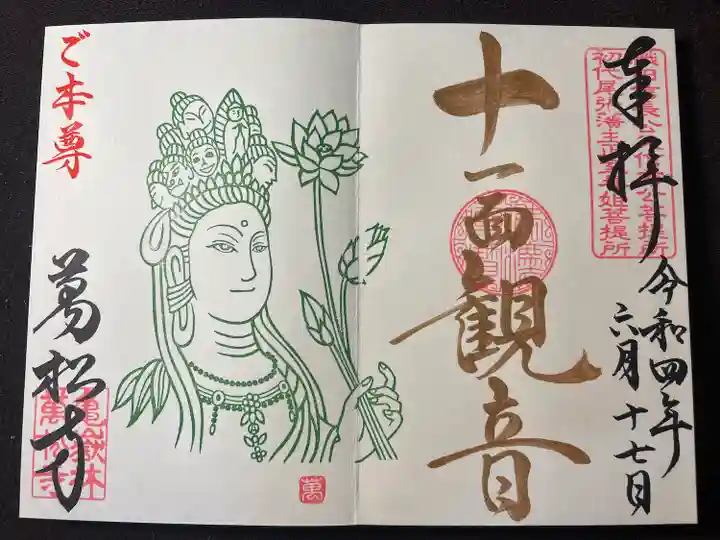 奉拝
令和四年
六月十七日
織田信長公父信秀公菩提所
初代尾張藩主正室春姫菩提所
十一面観音
ご本尊
萬松寺
亀嶽林
萬松寺
萬